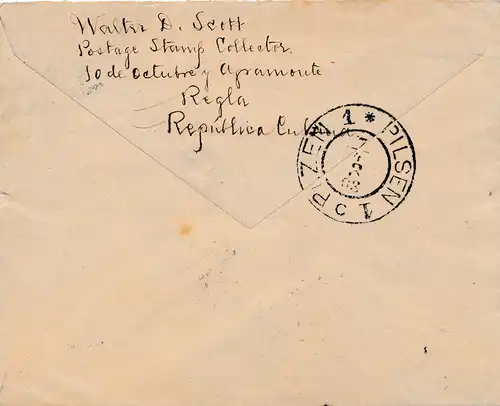 Walter D. Scott
Postage Stamp Collector.
10 de Octubre y Agramonte
Regla
Republica Cubana
PLZEŇ 1 * PILSEN 1